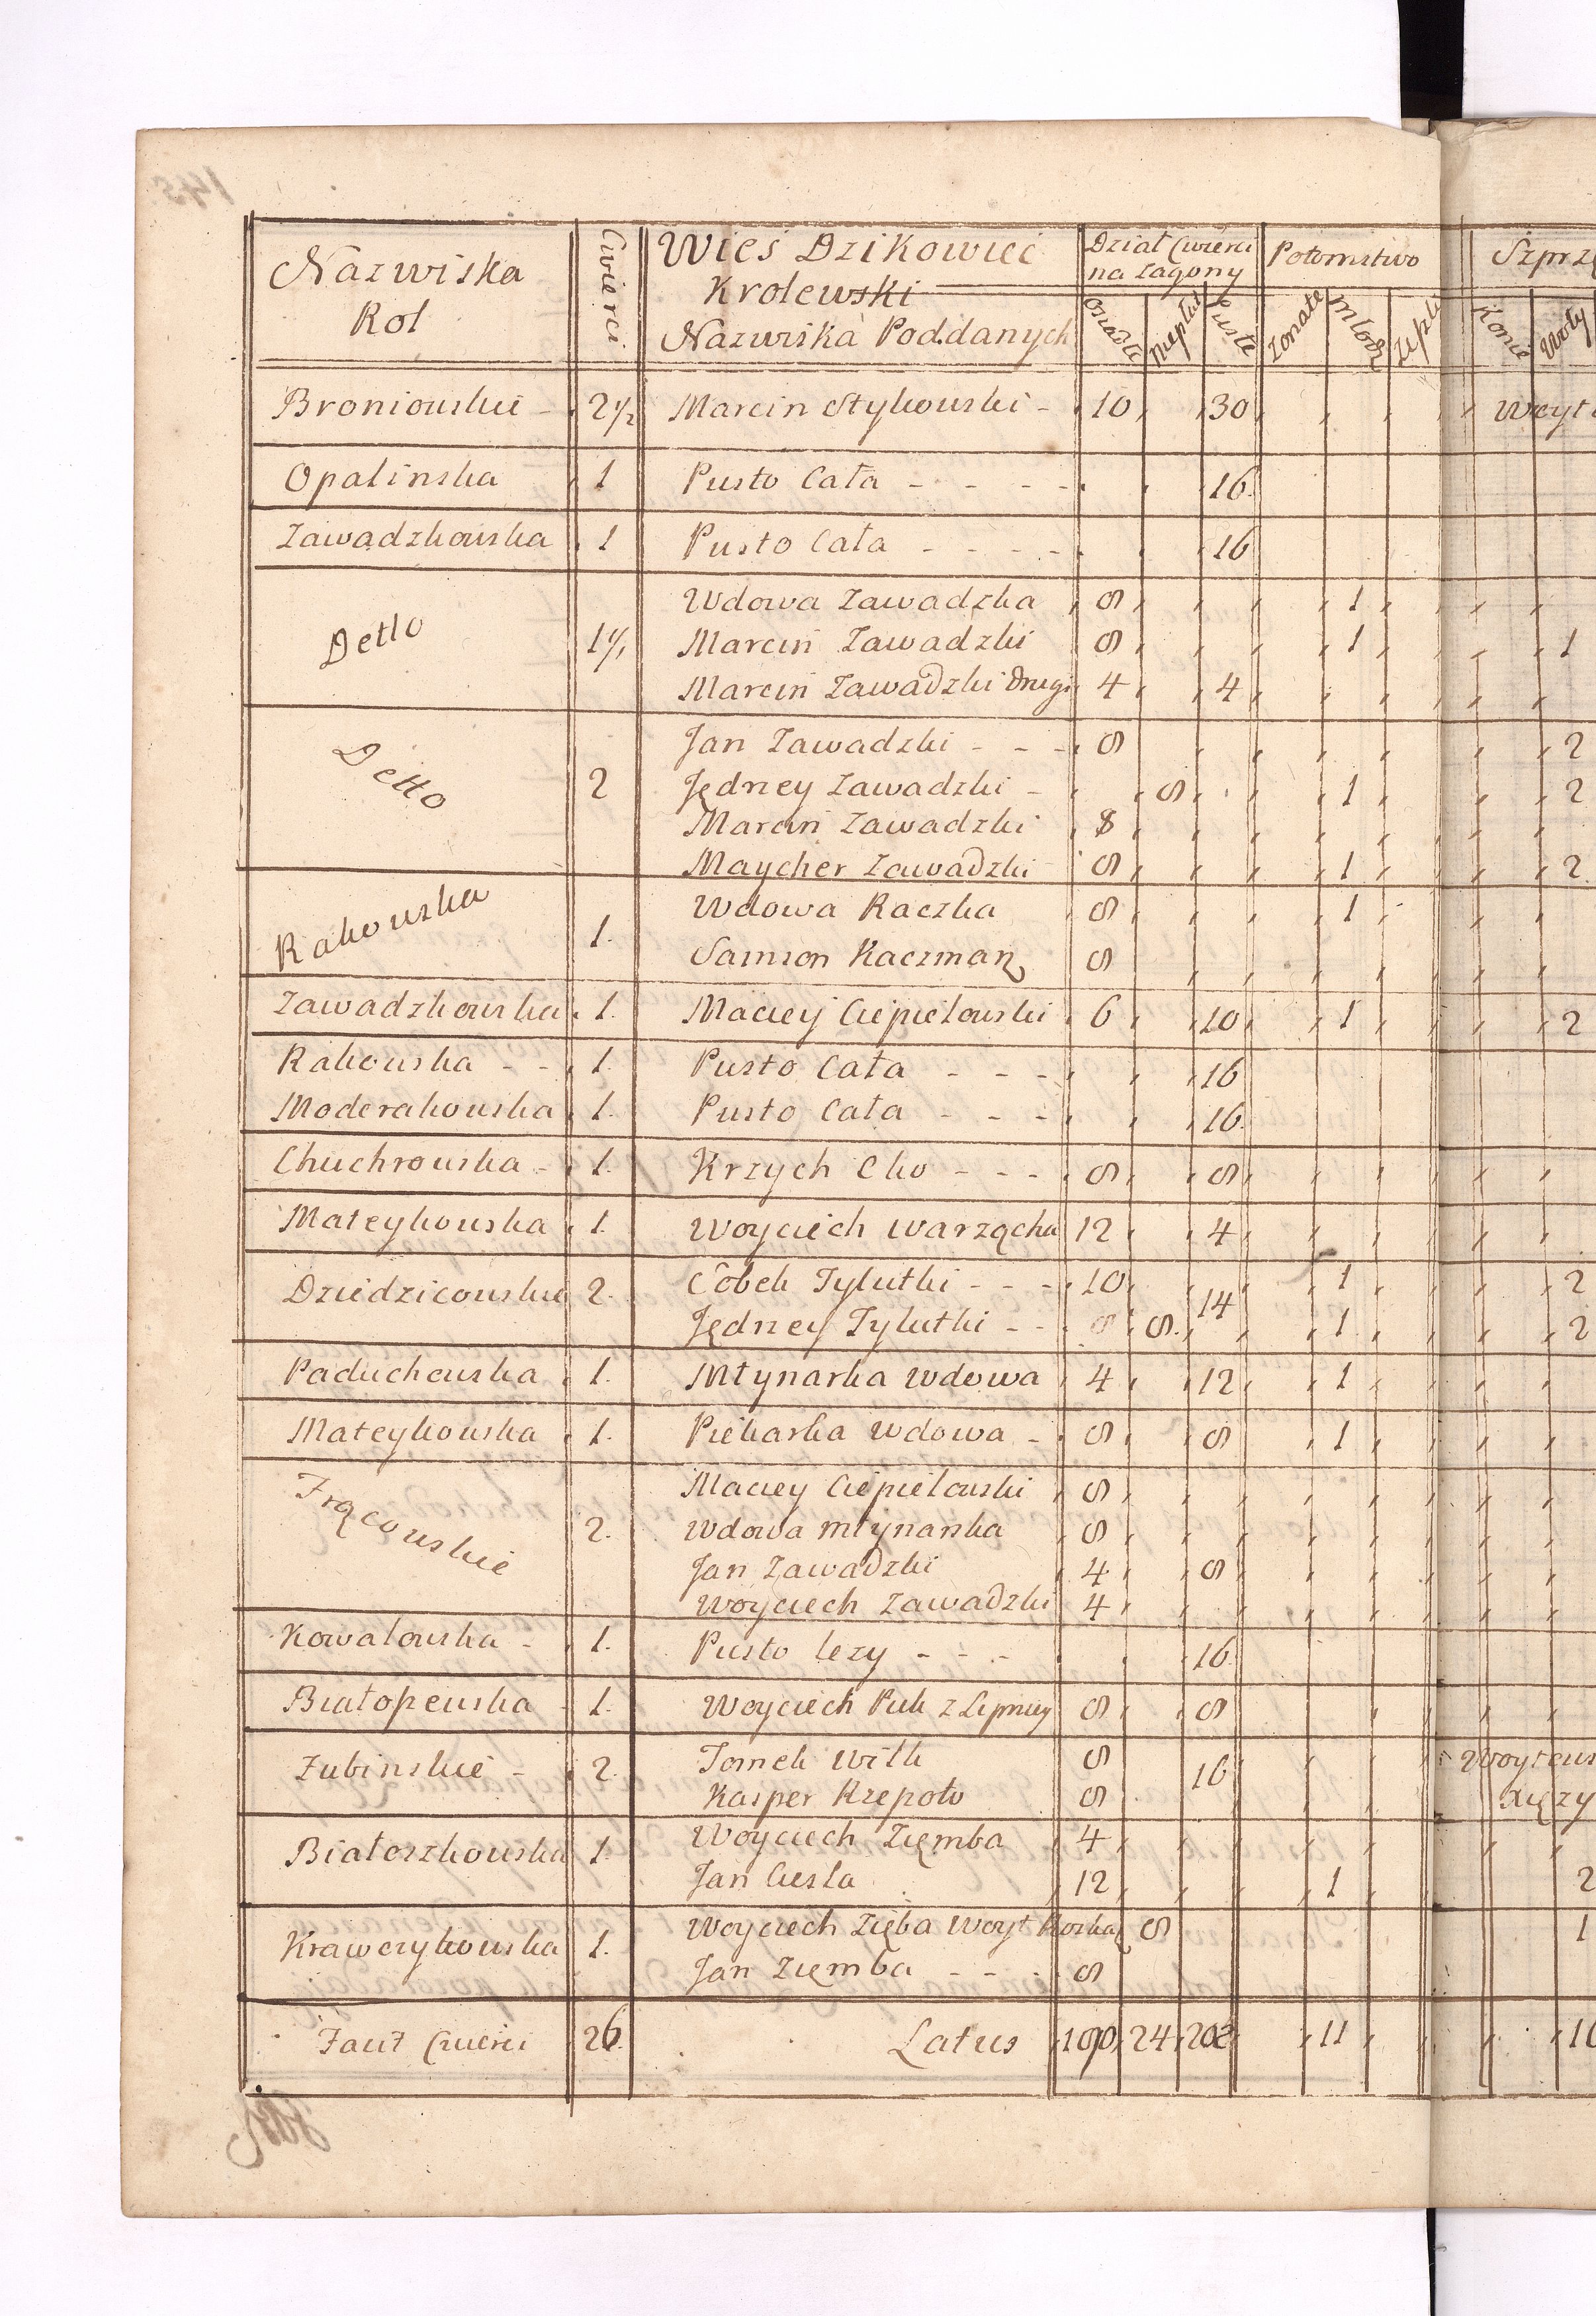 145
Nazwiska Rol | Cwierci | Wieś Dzikowiec Krolewski Nazwiska Poddanych | Dział Cwierci na zagony | Potomstwo | Szprz
Osiadłe | Niepłat | Puste | Zonate | Młodz | | Konie | Woły
Broniowskie - 2 1/2 Marcin Stykowski - 10 30 Woyt
Opalinska 1 Pusto Cała - - - - 16.
Zawadzkowska 1 Pusto Cała - - - - 16
Wdowa Zawadzka 8 1
Detto 1 1/1 Marcin Zawadzki 8 1 1
Marcin Zawadzki drugi 4 4
Jan Zawadzki - - - 8 2
Detto 2 Jędrzey Zawadzki - 8 1 2
Marcin Zawadzki 8
Maycher Zawadzki 8 1 2
Rakowska 1. Wdowa Raczka 8 1
Samson Kaczmarz 8
Zawadzkowska 1. Maciey Ciepielowski 6 10 1 2
Rakowska - - 1. Pusto Cała - - - 16
Moderakowska 1. Pusto Cała - - - 16.
Chuchrowska - 1. Krzych Cko - - - 8 8
Mateykowska 1. Woyciech Warzącha 12 4
Dziedzicowskie 2. Cobek Tylutki - - - 10 14 1 2
Jędrzey Tylutki - - 8 8. 1 2
Paduchowska 1. Młynarka Wdowa 4 12 1
Mateykowska 1. Piekarka Wdowa - 8 8 1
Maciey Ciepielowski 8
Frącowskie 2. Wdowa Młynarka 8
Jan Zawadzki 4 8
Woyciech Zawadzki 4
Kowalowska - 1. Pusto lezy - - - 16
Białopewska 1. Woyciech Puk z Lipnicy 8 8
Zubinskie - 2. Tomek Wilk 8 16 Woytows
Kasper Rzepoło 8 xięzy
Białoszkowska 1. Woyciech Zięmba 4
Jan Ciesla 12 1 2
Krawczykowska 1. Woyciech Zięba Woyt 8 1
Jan Ziemba - - - 8
Facit Cwierci 26. Latus 190 24 202 11 1